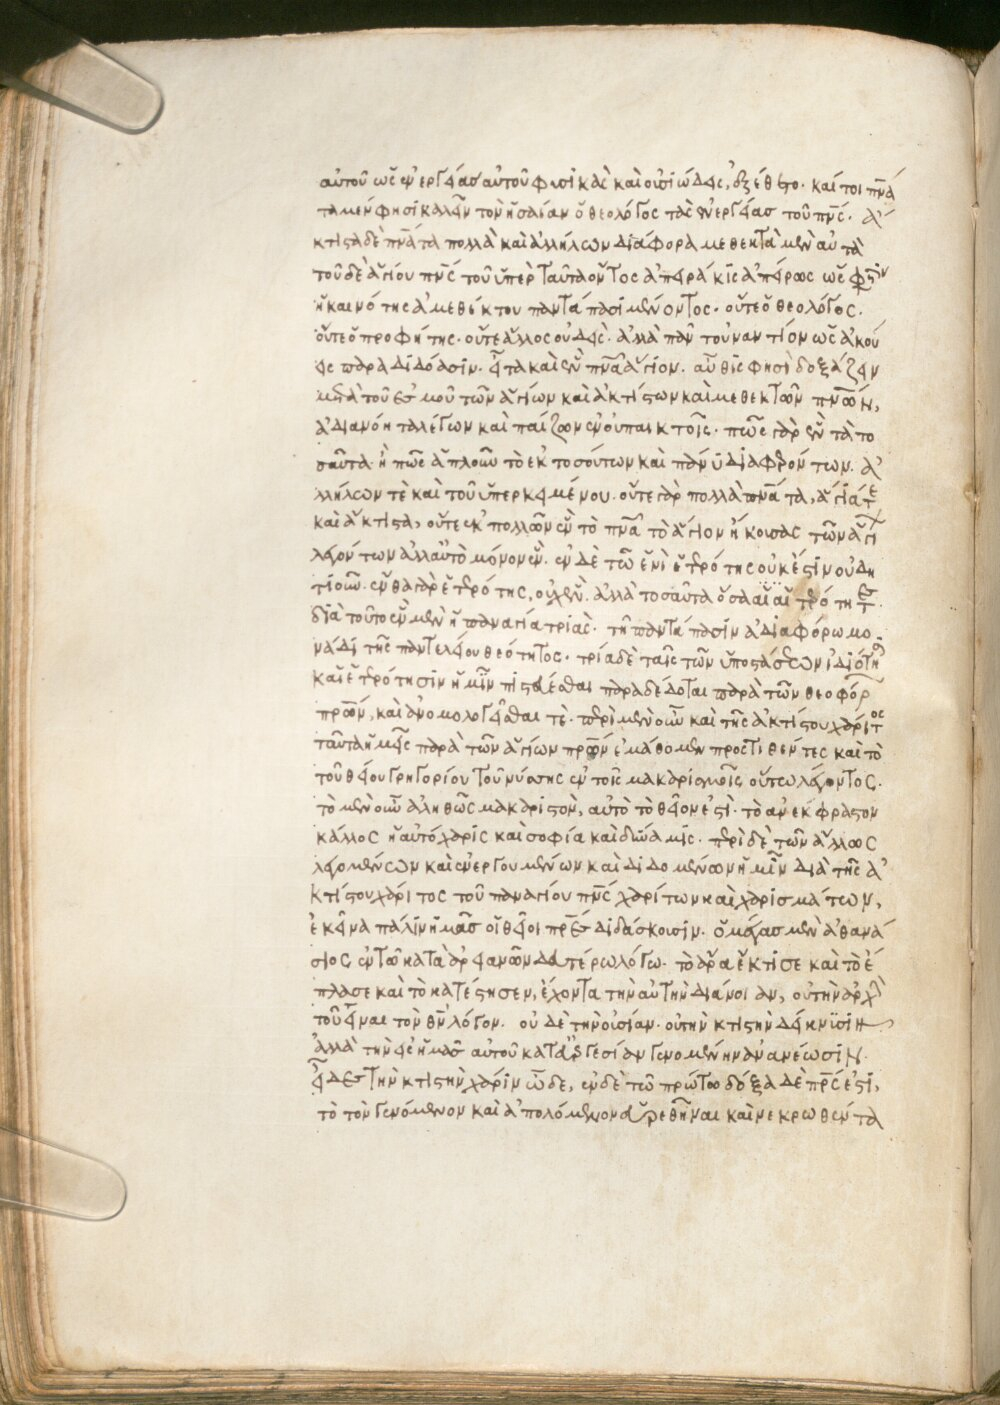 αὐτοῦ ὡς ἐνεργείας αὐτοῦ φυσικὰς καὶ οὐσιώδεις, ἐξέθετο. καί τοι πνᾶ
τα μὲν φησὶ καλεῖν τὸν ἡσαΐαν ὁ θεολόγος τὰς ἐνεργείας τοῦ πνς. ἄ
κτιστα δὲ πνᾶτα πολλὰ καὶ ἀλλήλων διάφορα μεθεκτὰ μὲν αὐτὰ
τοῦ δὲ ἁγίου πνς τοῦ ὑπὲρ ταῦτα ὄντος ἀπειράκις ἀπείρως ὥς φησιν
ἡ καινότης ἀμεθέκτου παντάπασι μένοντος. οὔτε ὁ θεολόγος.
οὔτε ὁ προφήτης. οὔτε ἄλλος οὐδεὶς. ἀλλὰ πᾶν τοὐναντίον ὡς ἀκού
εις παραδιδόασιν. εἶτα καὶ ἓν πνᾶ ἅγιον. αὖθις φησὶ δοξάζειν
μετὰ τοῦ ἑσμοῦ τῶν ἁγίων καὶ ἀκτίστων καὶ μεθεκτῶν πνων,
ἀδιανόητα λέγων καὶ παίζων ἐν οὐ παικτοῖς. πῶς γὰρ ἓν τὰ το
σαῦτα ἢ πῶς ἁπλοῦν τὸ ἐκ τοσούτων καὶ πάνυ διαφερόντων. ἀ
λλήλων τὲ καὶ τοῦ ὑπερκειμένου. οὔτε γὰρ πολλὰ πνᾶτα, ἅγιά τε
καὶ ἄκτιστα, οὔτε ἐκ πολλῶν ἓν τὸ πνᾶ τὸ ἅγιον ἤκουσας τῶν ἁγί
λεγόντων ἀλλ' αὐτὸ μόνον ἕν. ἐν δὲ τῶ ἑνὶ ἑτερότης οὐκ ἔστιν οὐδη
τιοῦν. ἔνθα γὰρ ἑτερότης, οὐχ ἕν. ἀλλὰ τοσαῦτα ὅσα αἱ ἑτερότητες.
διὰ τοῦτο ἓν μὲν ἡ παναγία τριὰς. τῆ παντάπασιν ἀδιαφόρω μο
νάδι τῆς παντελείου θεότητος. τρία δὲ ταῖς τῶν ὑποστάσεων ἰδιότησι
καὶ ἑτερότησιν ἡμῖν πιστεύεσθαι παραδέδοται παρὰ τῶν θεοφόρ
πρων, καὶ ἀνομολογεῖσθαι τὲ. περὶ μὲν οὖν καὶ τῆς ἀκτίστου χάριτος
ταῦτα ἡμεῖς παρὰ τῶν ἁγίων πρων ἐμάθομεν προστιθέντες καὶ τὸ
τοῦ θείου γρηγορίου τοῦ νύσσης ἐν τοῖς μακαρισμοῖς οὕτω λέγοντος.
τὸ μὲν οὖν ἀληθῶς μακαριστὸν, αὐτὸ τὸ θεῖον ἐστὶ. τὸ ἀνέκφραστον
κάλλος ἡ αὐτόχαρις καὶ σοφία καὶ δύναμις. περὶ δὲ τῶν ἄλλως
λεγομένων καὶ ἐνεργουμένων καὶ διδομένων ἡμῖν διὰ τῆς ἀ
κτίστου χάριτος τοῦ παναγίου πνς χαρίτων καὶ χαρισμάτων,
ἐκεῖνα πάλιν ἡμᾶς οἱ θεῖοι πρες διδάσκουσιν. ὁ μέγας μὲν ἀθανά
σιος ἐν τῶ κατὰ ἀρειανῶν δευτέρω λόγω. τὸ ἄρα ἔκτισε καὶ τὸ ἔ
πλασε καὶ τὸ κατέστησεν, ἔχοντα τὴν αὐτὴν διάνοιαν, οὐ τὴν ἀρχὴ
τοῦ εἶναι τὸν θν λόγον. οὐδὲ τὴν οὐσίαν. οὐ τὴν κτιστὴν δείκνυσιν
ἀλλὰ τὴν εἰς ἡμᾶς αὐτοῦ κατ' εὐεργεσίαν γενομένην ἀνανέωσιν.
εἶδες τὴν κτιστὴν χάριν ὧδε, ἐν δὲ τῶ πρώτω δόξα δὲ πρς ἐστὶ,
τὸ τὸν γενόμενον καὶ ἀπολόμενον εὑρεθῆναι καὶ νεκρωθέντα